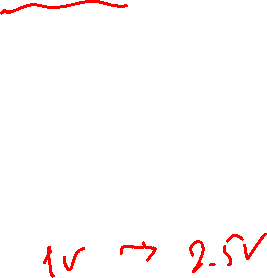 1V → 2.5V